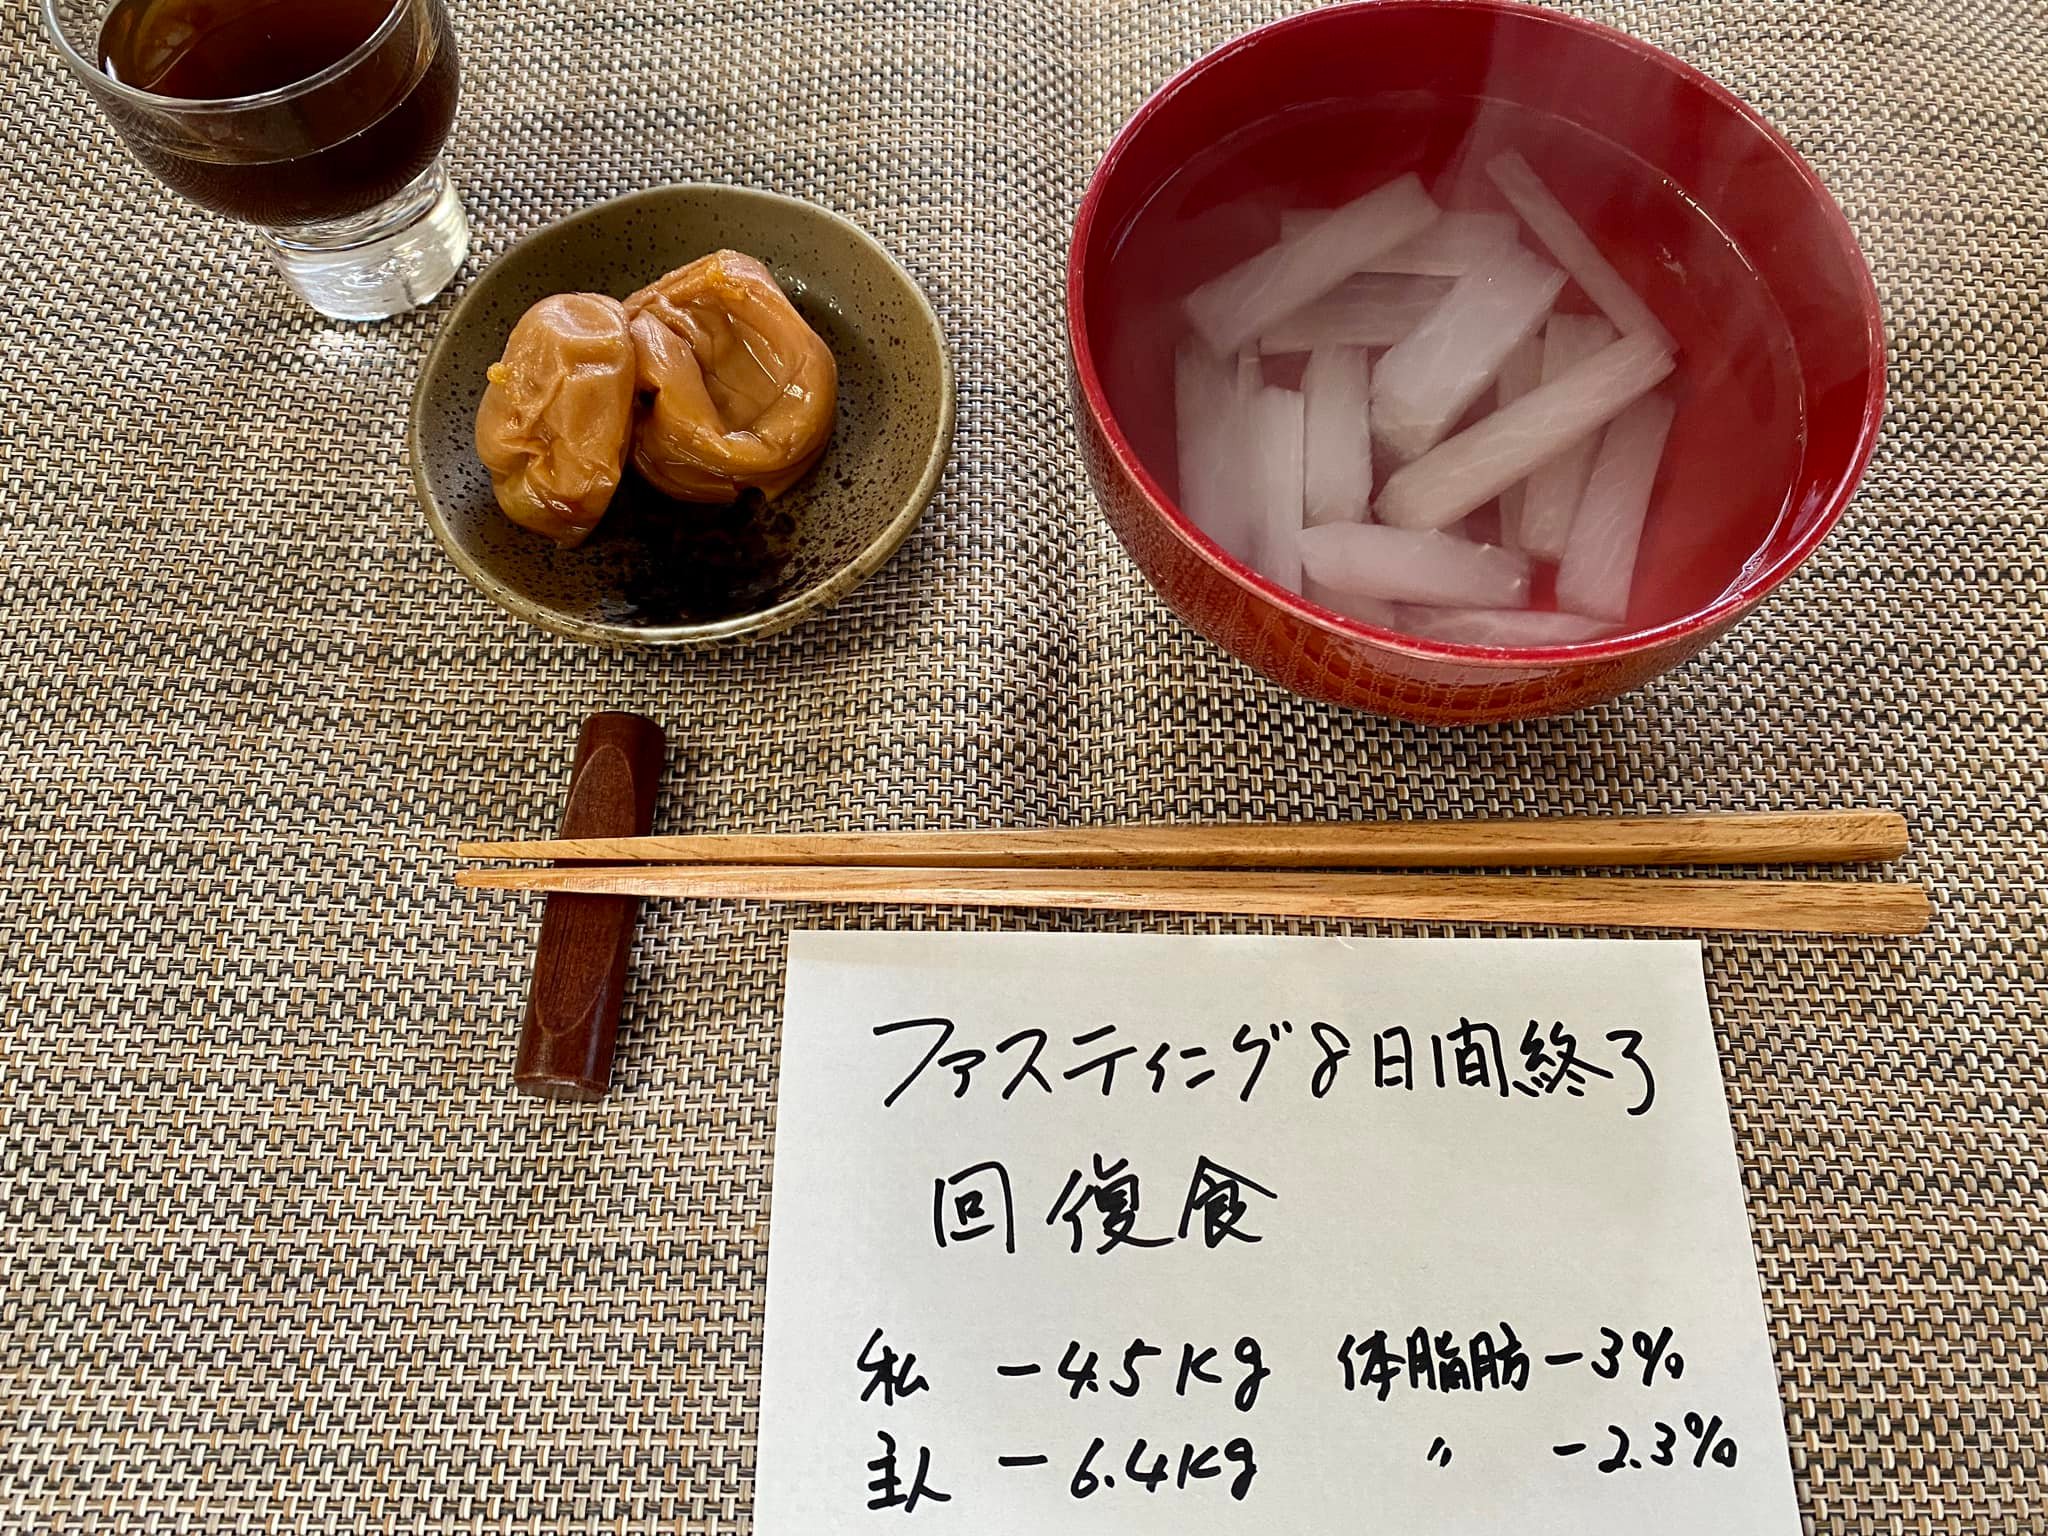 ファスティング8日間終了
回復食
私 -4.5Kg 体脂肪-3%
主人 -6.4Kg 〃 -2.3%